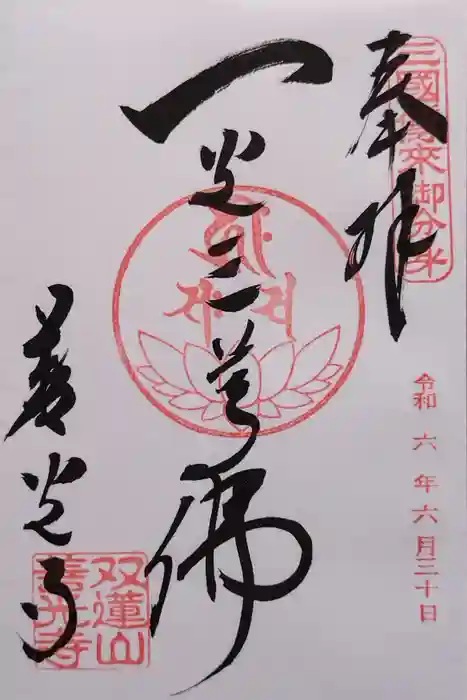 奉拝
三國傳来御分身
令和六年六月三十日
一光三尊佛
善光寺
双蓮山
善光寺